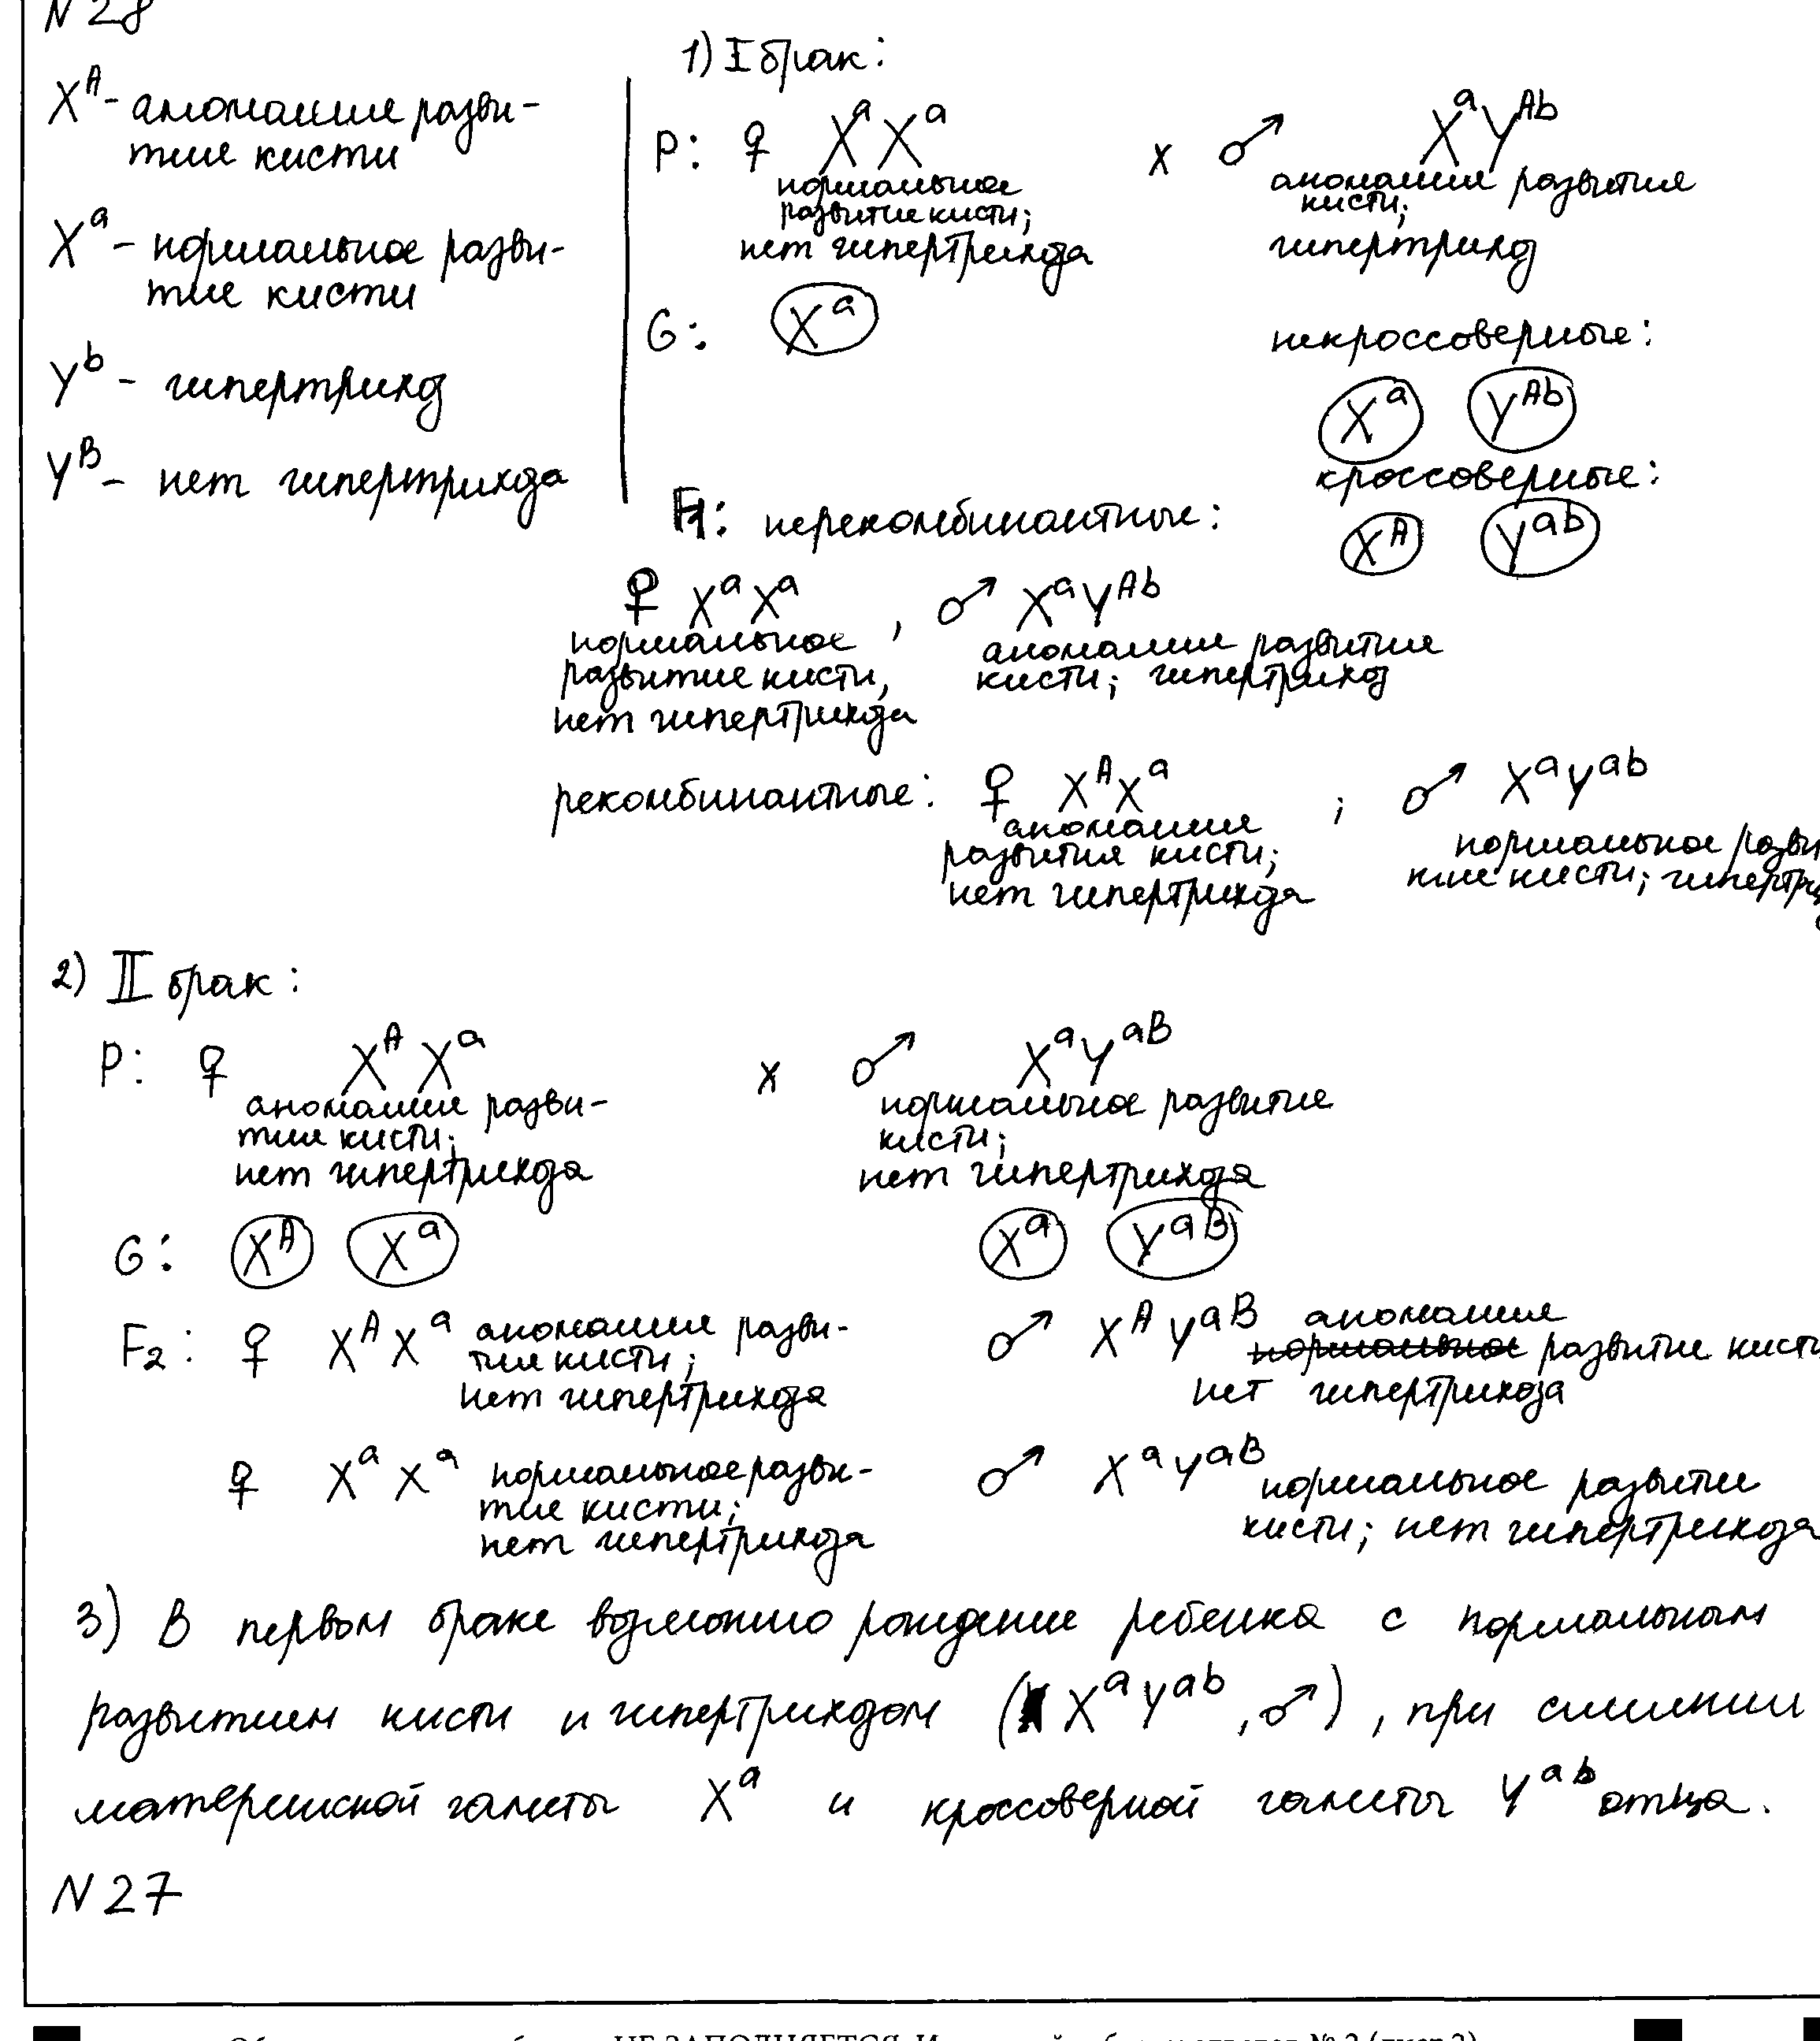 N 28
X^A - аномалия разви-
тия кисти
X^a - нормальное разви-
тие кисти
Y^b - гипертрихоз
Y^B - нет гипертрихоза
1) I брак:
P: ♀ X^a X^a x ♂ X^a Y^Ab
нормальное развитие кисти; нет гипертрихоза
аномалия развития кисти; гипертрихоз
G: X^a
некроссоверные:
X^a Y^Ab
кроссоверные:
X^A Y^ab
F1: нерекомбинантные:
♀ X^a X^a , ♂ X^a Y^Ab
нормальное развитие кисти, нет гипертрихоза
аномалия развития кисти; гипертрихоз
рекомбинантные: ♀ X^A X^a ; ♂ X^a Y^ab
аномалия развития кисти; нет гипертрихоза
нормальное разви
тие кисти; гипертри
2) II брак:
P: ♀ X^A X^a x ♂ X^a Y^aB
аномалия разви-
тия кисти;
нет гипертрихоза
нормальное развитие
кисти;
нет гипертрихоза
G: X^A X^a X^a Y^aB
F2: ♀ X^A X^a аномалия разви-
тия кисти;
нет гипертрихоза
♂ X^A Y^aB аномалия
развитие кисти
нет гипертрихоза
♀ X^a X^a нормальное разви-
тие кисти;
нет гипертрихоза
♂ X^a Y^aB нормальное развити
кисти; нет гипертрихоза
3) В первом браке возможно рождение ребенка с нормальным
развитием кисти и гипертрихозом (X^a Y^ab, ♂), при слиянии
материнской гаметы X^a и кроссоверной гаметы Y^ab отца.
N 27